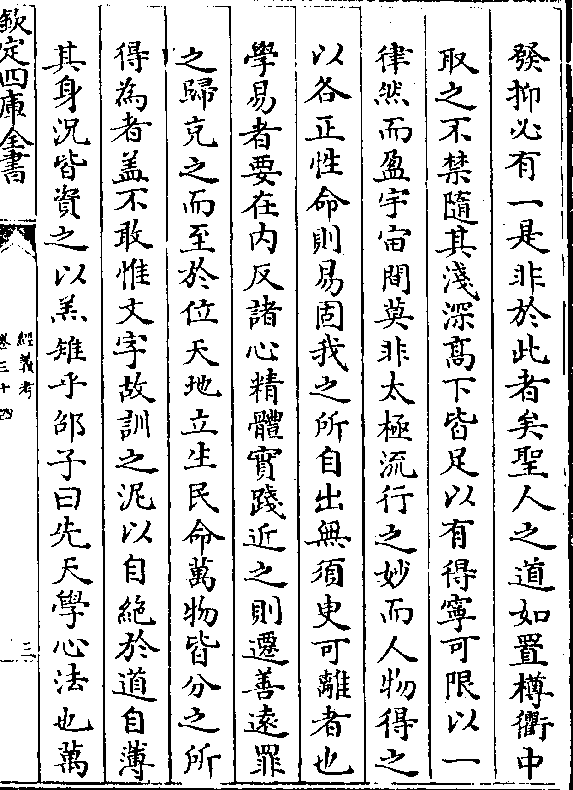 發抑必有一是非於此者矣聖人之道如置樽衢中
取之不禁隨其淺深髙下皆足以有得寧可限以一
律然而盈宇宙間莫非太極流行之妙而人物得之
以各正性命則易固我之所自出無須臾可離者也
學易者要在内反諸心精體實踐近之則遷善逺罪
之歸克之而至於位天地立生民命萬物皆分之所
得為者盖不敢惟文字故訓之泥以自絶於道自薄
其身況皆資之以羔雉乎邵子曰先天學心法也萬
欽定四庫全書
經義考
卷三十四
三